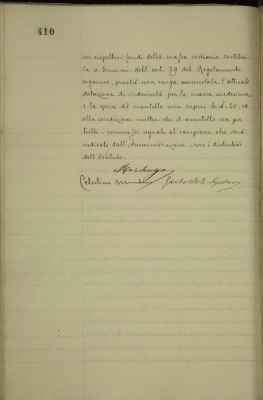 410
coi rispettivi fondi della massa vestiario costitui-
ta a termini dell'art. 79 del Regolamento
organico, purchè non venga aumentata l'attuale
dotazione di indennità per la massa medesima
e la spesa del mantello non superi le £. 20, ed
alla condizione inoltre che il mantello sia per
tutti i commessi uguale al campione che sarà
indicato dall'Amministrazione, con i distintivi
dell'Istituto.
Celestino